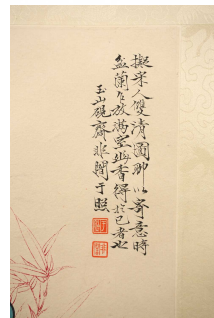 擬宋人雙清圖聊以寄意時
盆蘭乍放滿室幽香得於己者也
玉山硯齋非闇于照